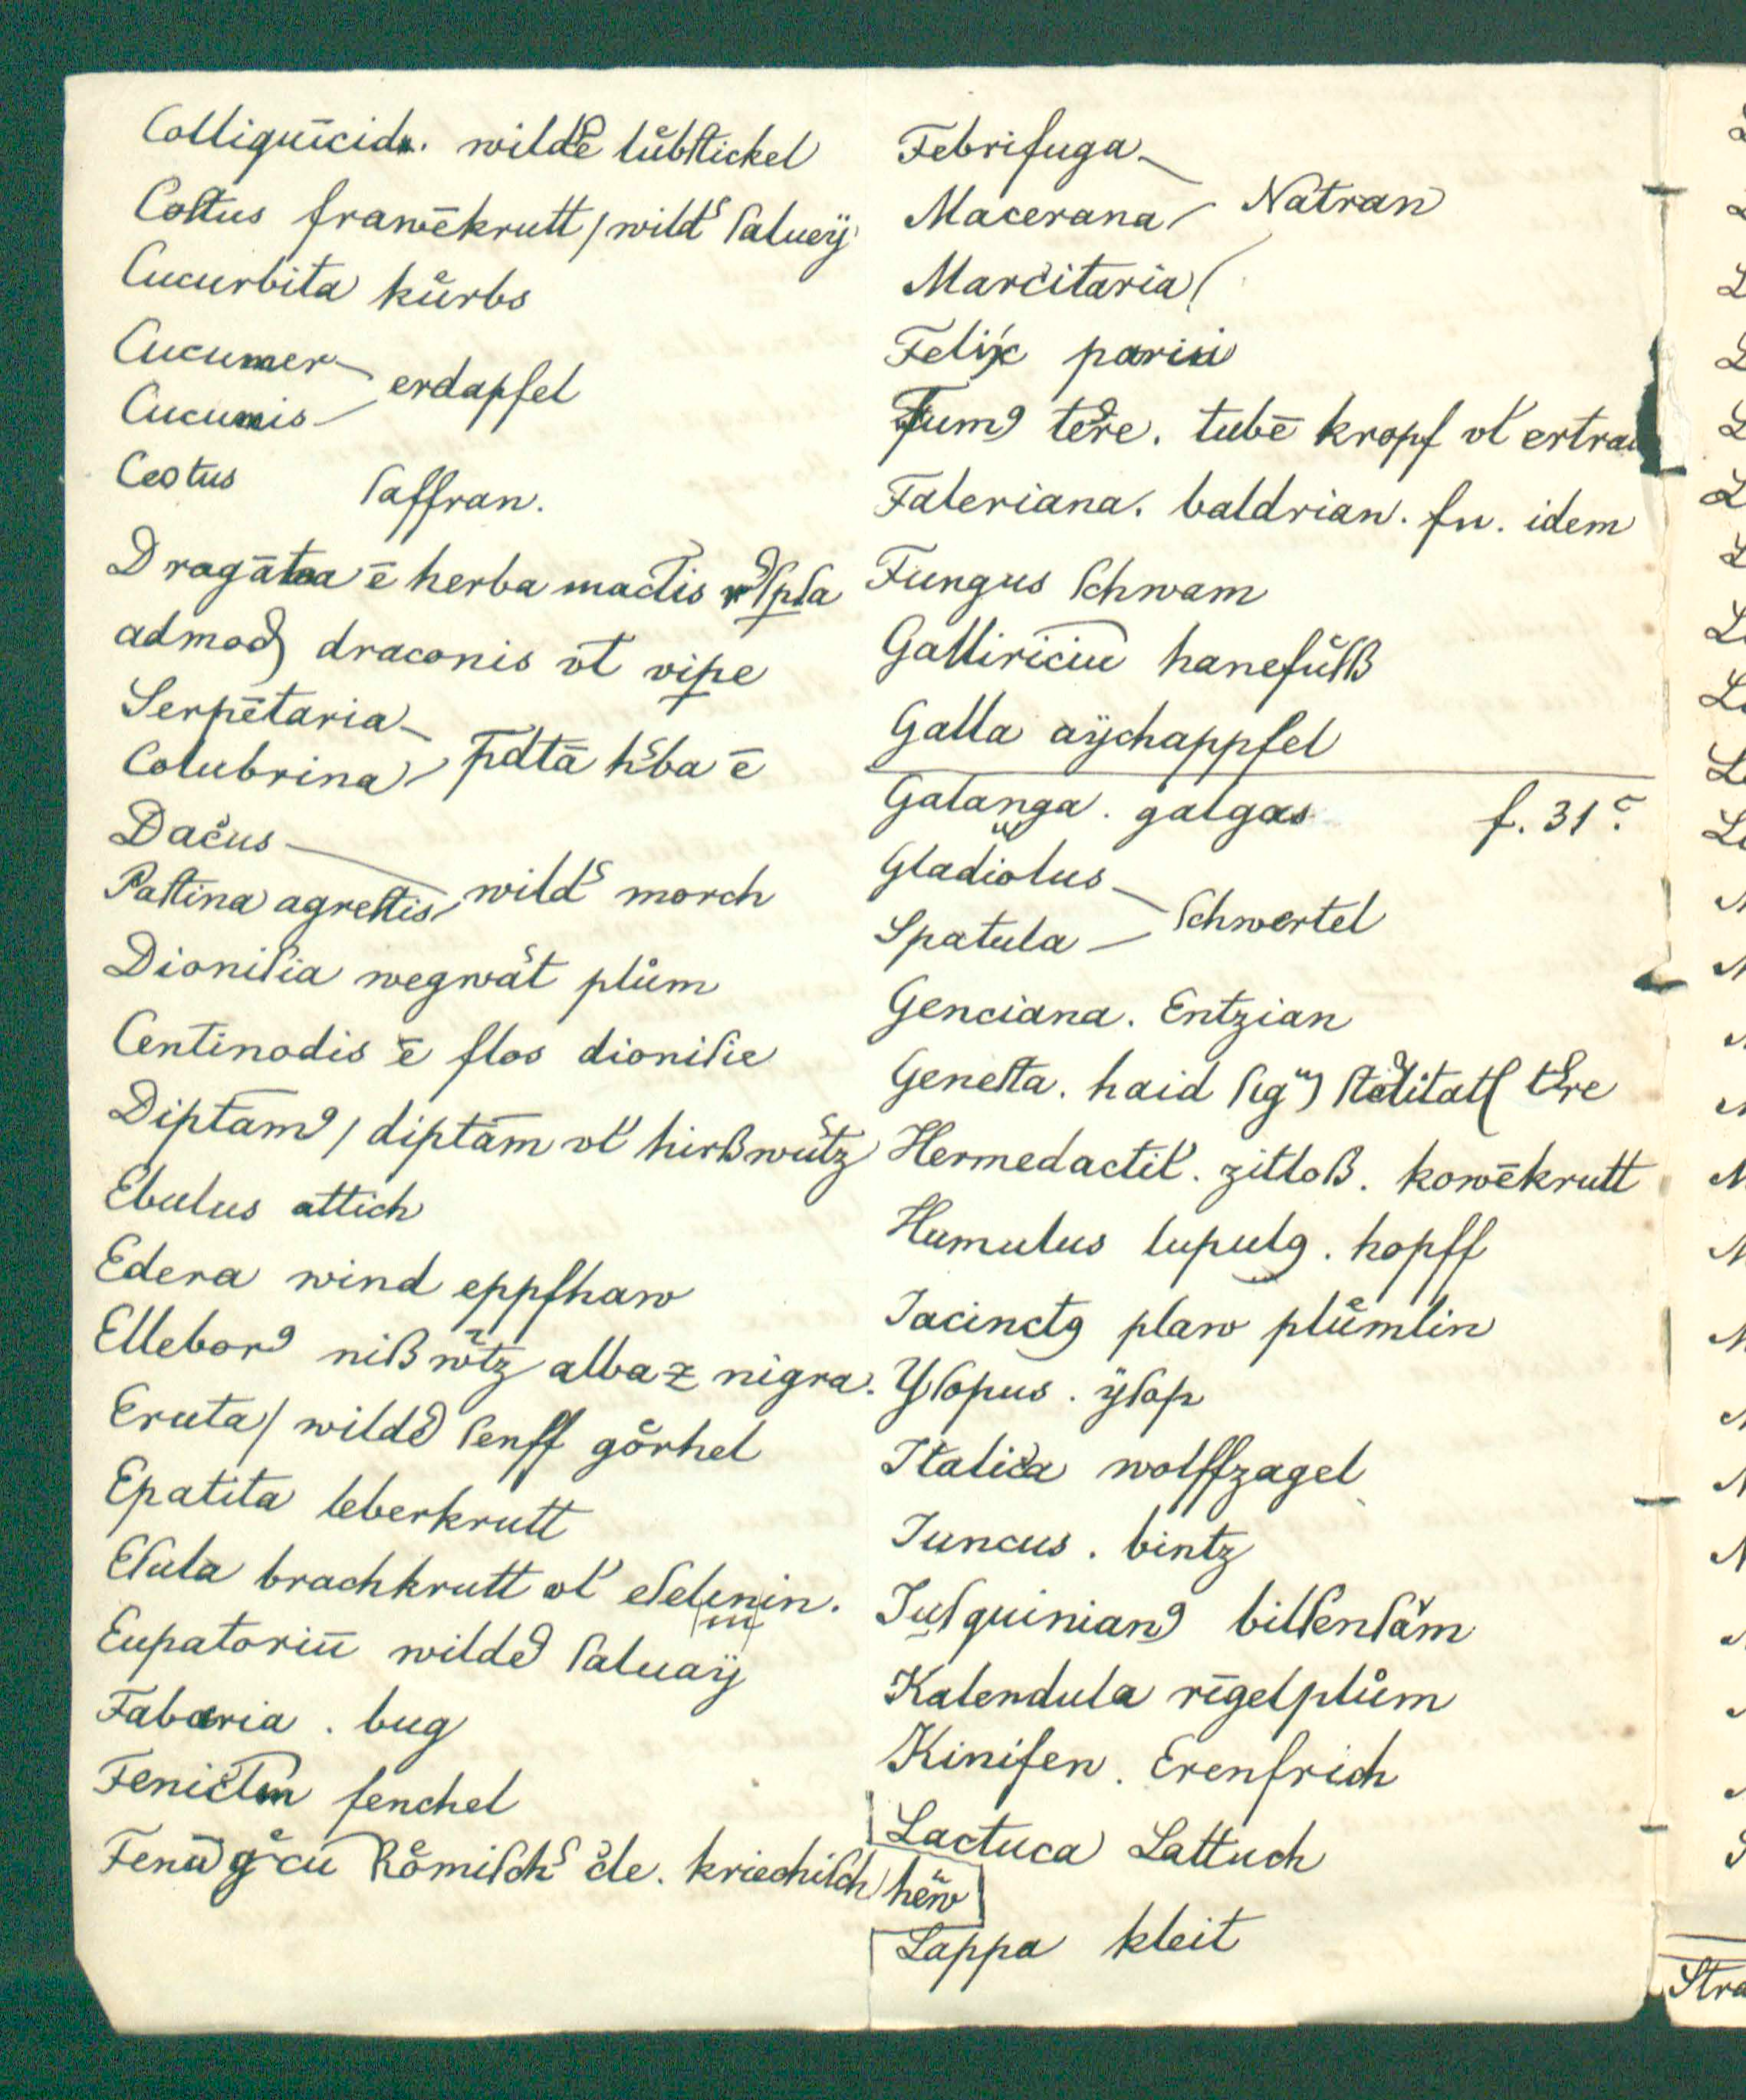 Colligūicida. wildē lůbſtickel
Coſtus frawēkrutt / wild ſalueÿ
Cucurbita kůrbs
Cucumer
Cucumis erdapfel
Ceotus ſaffran.
Dragātea ē herba mactis
admod draconis vł vipe
Serpētaria
Colubrina p̄dtā hba ē
Dacus
Paſtina agreſtis wild morch
Dioniſia wegwat plům
Centinodis ē flos dioniſie
Diptam9 / diptām vł hirßwutz
Ebulus attich
Edera wind eppfhaw
Ellebor9 nißwtz alba z nigra.
Eruta / wild ſenff górhel
Epatita leberkrutt
Eſula brachkrutt vł eſelmin.
Eupatoriū wild ſaluaÿ
Fabaria . bug
Fenicłm fenchel
Fenū gcū Rómiſch cle. kriechiſch
hew
Febrifuga
Macerana Natran
Marcitaria
Felix parisi
Fum9 tere. tubē kropf vł ertra
Faleriana. baldrian. fu. idem
Fungus ſchwam
Galliriciū hanefůſß
Galla aÿchappfel
Galanga . galgas f. 31
Gladiolus
Spatula ſchwertel
Genciana. Entzian
Geneſta. haid tere
Hermedactil. zitloß. kowēkrutt
Humulus lupulg. hopff
Jacinctg plaw plůmlin
Yſopus . ÿſop
Italica wolffzagel
Juncus . bintz
Juſquinian9 bilſenſam
Kalendula rīgelplům
Kinifen. Erenfrich
Lactuca Lattuch
Lappa kleit
Stra